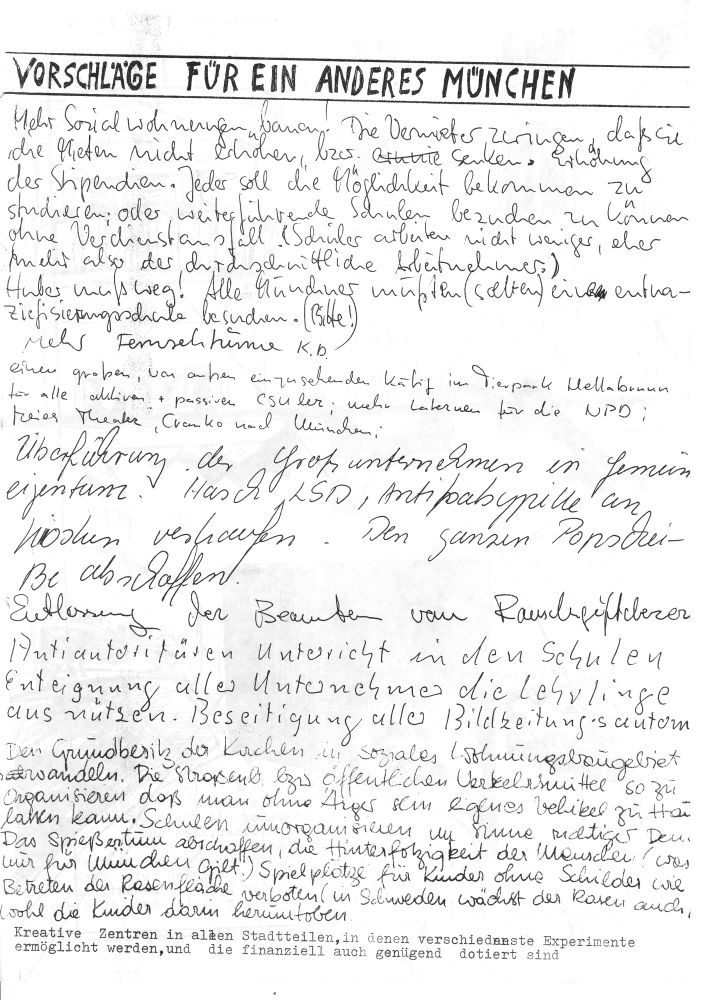 VORSCHLÄGE FÜR EIN ANDERES MÜNCHEN
Mehr Sozialwohnungen bauen! Die Vermieter zwingen, daß sie
die Mieten nicht erhöhen, bzw. senken. Erhöhung
der Stipendien. Jeder soll die Möglichkeit bekommen zu
studieren; oder weiterführende Schulen besuchen zu können
ohne Verdienstausfall! (Schüler arbeiten nicht weniger, eher
mehr als der durchschnittliche Arbeitnehmer.)
Huber muß weg! Alle Münchner müßten (sollten) eine entna-
zifisierungsschule besuchen. (Bitte!)
Mehr Fernsehtürme K.D.
einen großen, von außen einzusehenden Käfig im Tierpark Hellabrunn
für alle aktiven + passiven CSUler; mehr Laternen für die NPD;
freies Theater, Cranko nach München;
Überführung der Großunternehmen in Gemein
eigentum. Hasch, LSD, Antibabypille an
Kiosken verkaufen. Den ganzen Popschei-
ße abschaffen.
Entlassung der Beamten vom Rauschgiftdezer
Antiautoritären Unterricht in den Schulen
Enteignung aller Unternehmer die Lehrlinge
aus nützen. Beseitigung aller Bildzeitungsautom
Den Grundbesitz der Kirchen in soziales Wohnungsbaugebiet
umwandeln. Die Straßenb. bzw öffentlichen Verkehrsmittel so zu
Organisieren daß man ohne Ärger sein eigenes Vehikel zu Hau
lassen kann. Schulen umorganisieren im Sinne richtiger Dem.
Das Spießertum abschaffen, die Hinterfotzigkeit der Menschen (was
nur für München gilt.) Spielplätze für Kinder ohne Schilder wie
Betreten der Rasenfläche verboten (in Schweden wächst der Rasen auch,
wohl die Kinder darin herumtoben.
Kreative Zentren in allen Stadtteilen,in denen verschiedenste Experimente
ermöglicht werden,und die finanziell auch genügend dotiert sind